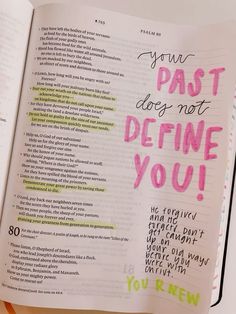 PSALM 80
2 They have left the bodies of your servants
as food for the birds of heaven.
The flesh of your godly ones
has become food for the wild animals.
3 Blood has flowed like water all around Jerusalem;
no one is left to bury the dead.
4 We are mocked by our neighbors,
an object of scorn and derision to those around us.
5 O LORD, how long will you be angry with us?
Forever?
How long will your jealousy burn like fire?
6 Pour out your wrath on the nations that refuse to
acknowledge you—
on kingdoms that do not call upon your name.
7 For they have devoured your people Israel,
making the land a desolate wilderness.
8 Do not hold us guilty for the sins of our ancestors!
Let your compassion quickly meet our needs,
for we are on the brink of despair.
9 Help us, O God of our salvation!
Help us for the glory of your name.
Save us and forgive our sins
for the honor of your name.
10 Why should pagan nations be allowed to scoff,
asking, "Where is their God?"
Show us your vengeance against the nations,
for they have spilled the blood of your servants.
11 Listen to the moaning of the prisoners.
Demonstrate your great power by saving those
condemned to die.
12 O Lord, pay back our neighbors seven times
for the scorn they have hurled at you.
13 Then we your people, the sheep of your pasture,
will thank you forever and ever,
praising your greatness from generation to generation.
80
For the choir director: A psalm of Asaph, to be sung to the tune "Lilies of the
Covenant."
1 Please listen, O Shepherd of Israel,
you who lead Joseph's descendants like a flock.
O God, enthroned above the cherubim,
display your radiant glory
2 to Ephraim, Benjamin, and Manasseh.
Show us your mighty power.
Come to rescue us!
your
PAST
does not
DEFINE
YOU!
He forgives
and He
forgets. Don't
get caught
up on your
old ways
before you
were with
Christ.
YOU R NEW